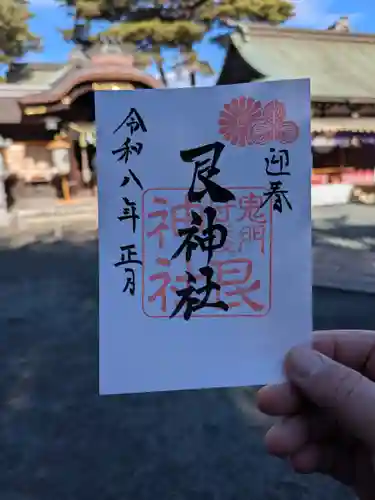 迎春
艮神社
令和八年正月
鬼門
艮
神社